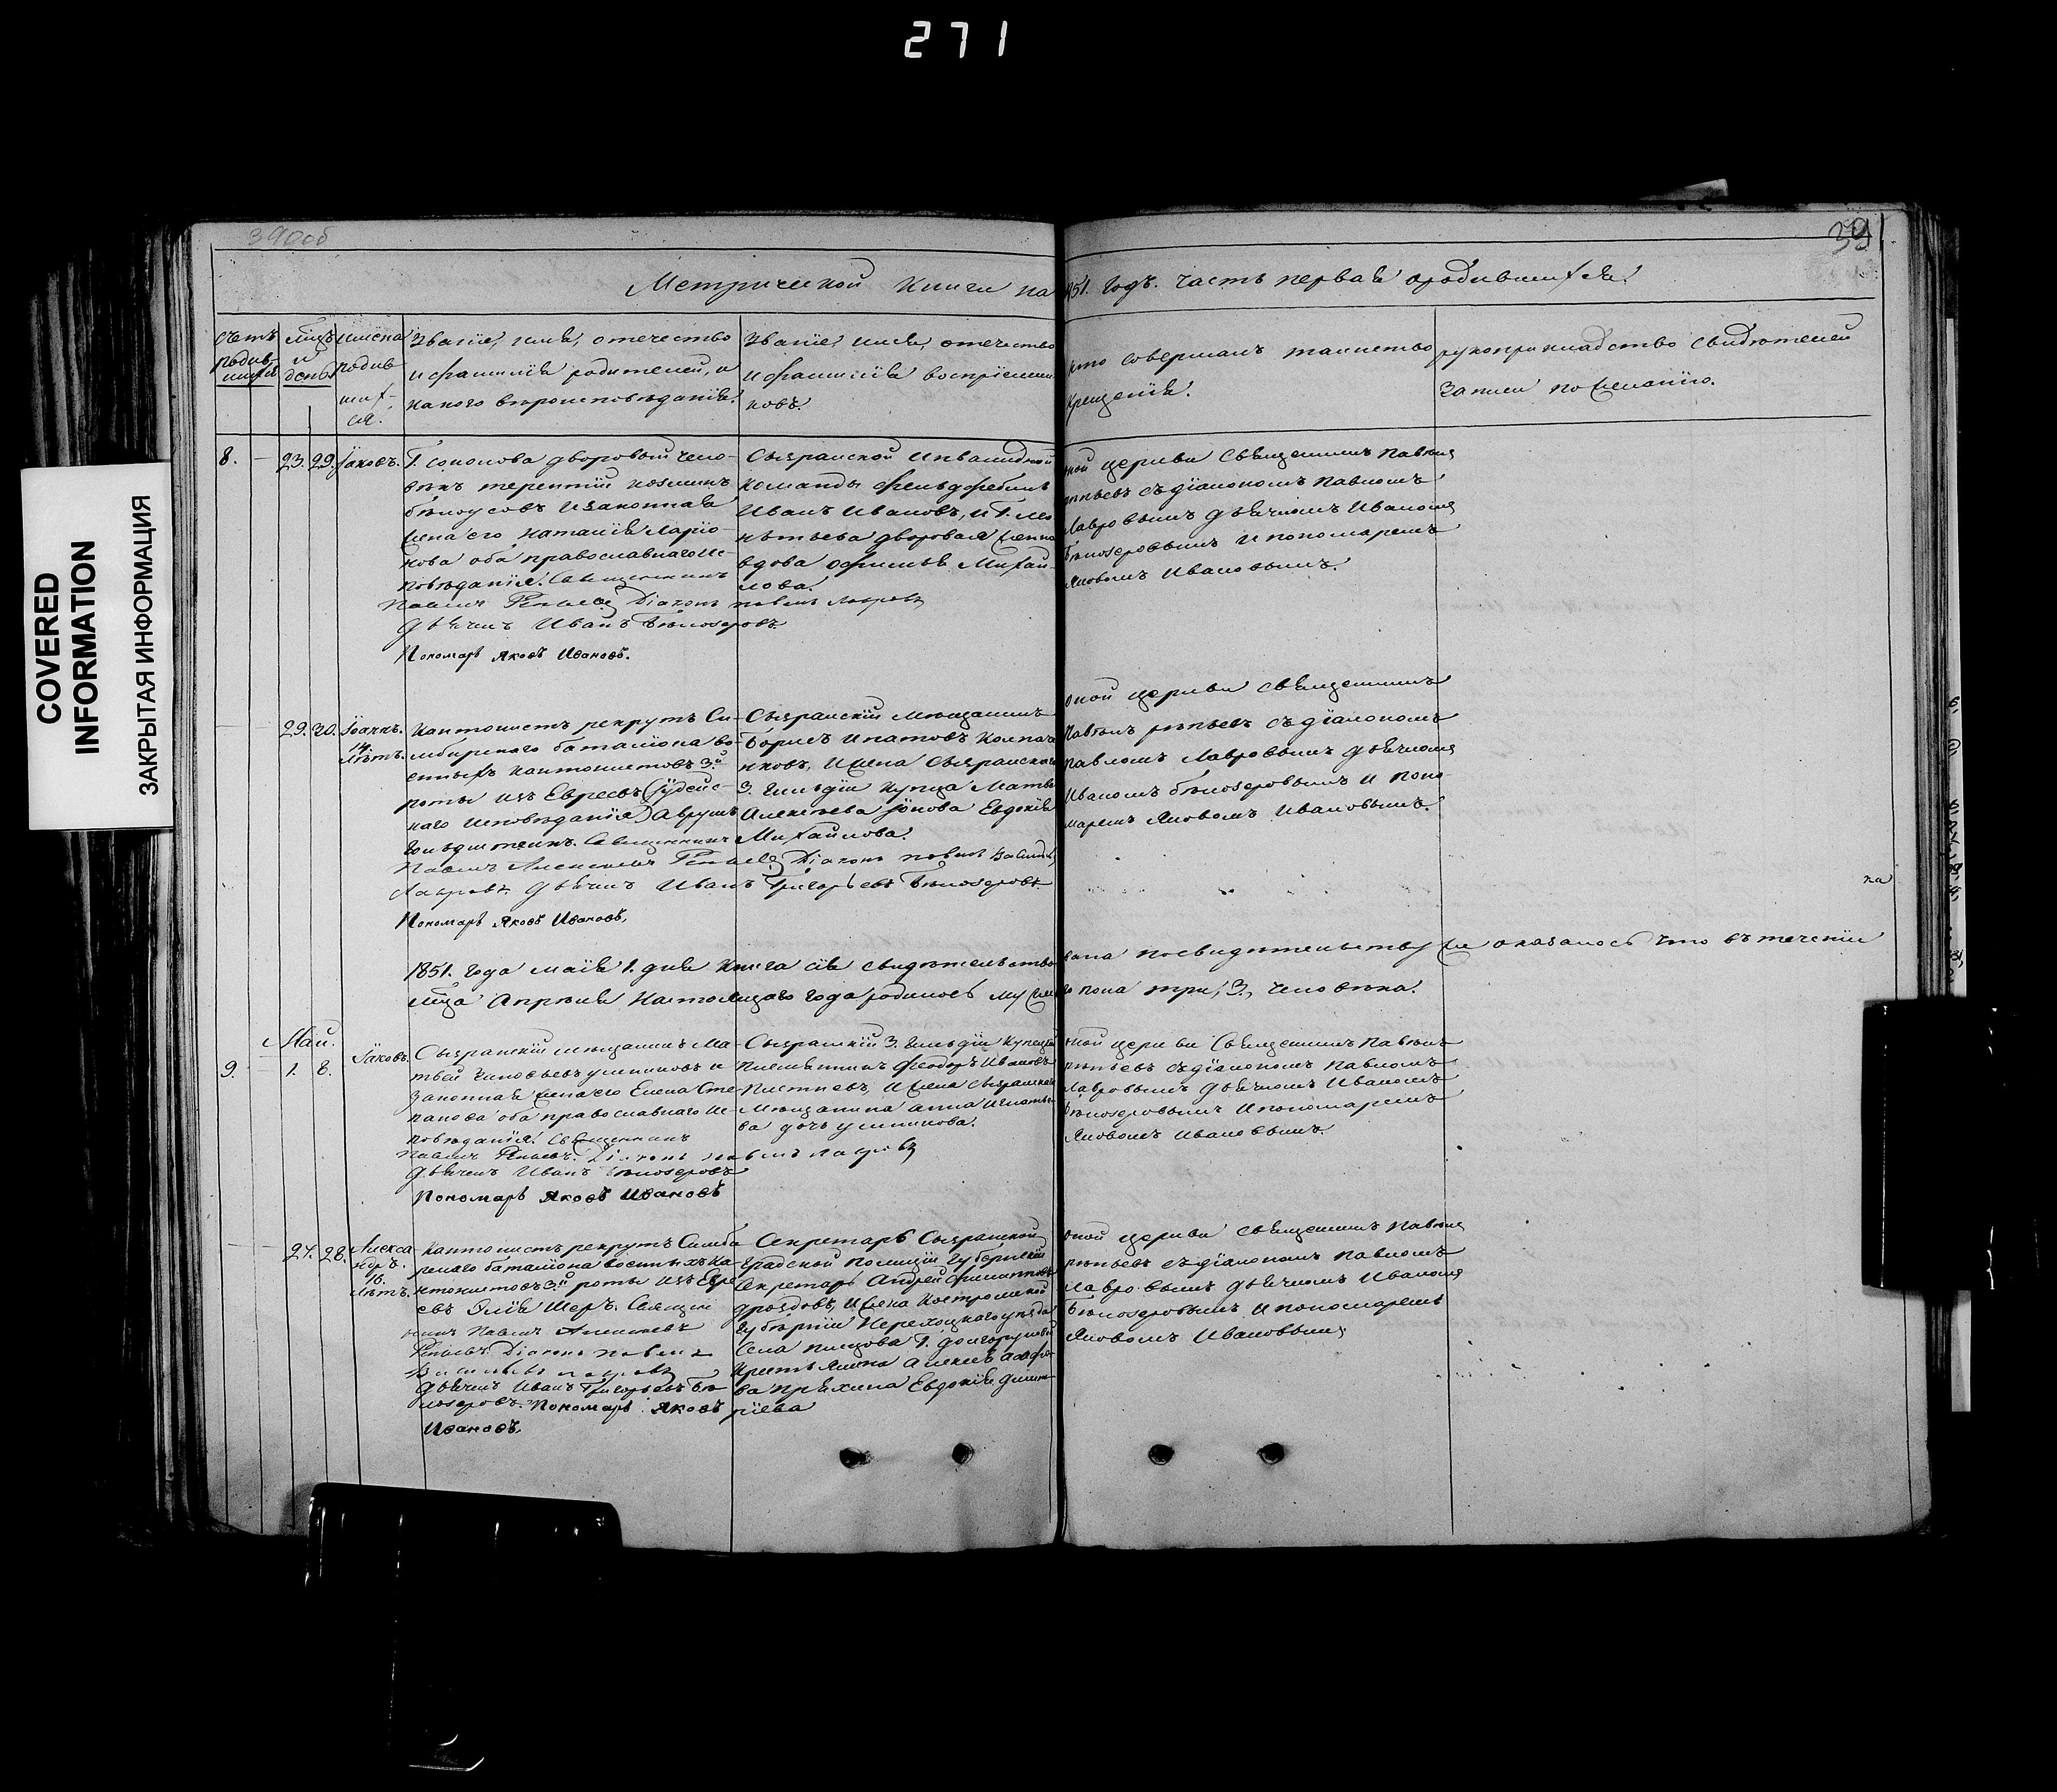 271
COVERED
INFORMATION
ЗАКРЫТАЯ ИНФОРМАЦИЯ
390об
391
Метрической книги на 1851. годъ. часть первая о родившихся.
счетъ родившихся
мцъ и день
имена родившихся.
Званіе, имя, отечество
и фамилія родителей, и
какого вѣроисповѣданія.
Званіе, имя, отечество
и фамилія воспріемни
ковъ.
кто совершалъ таинство
крещенія.
рукоприкладство свидѣтелей
записи по желанію.
8. 23. 29. Іаковъ.
Г. Соколова дворовый чело-
вѣкъ Терентій Козминъ
бѣлоусовъ и законная
жена его Наталія Ларіо-
нова оба православнаго ис-
повѣданія. Священникъ
Павелъ Діаконъ павелъ Лавровъ
Дьячекъ Иванъ Бѣлозеровъ
Пономарь Яковъ Ивановъ.
Сызранской инвалидной
команды фельдфебель
Иванъ Ивановъ, и Г.
дворовая женка
вдова Михай-
лова.
церкви Священникъ Павелъ
съ діакономъ Павломъ
Лавровымъ дьячкомъ Иваномъ
Бѣлозеровымъ и пономаремъ
Яковомъ Ивановымъ.
29. 30. Іоаннъ.
14.
лѣтъ.
Кантонистъ рекрутъ Си-
мбирскаго баталіона во-
енныхъ кантонистовъ 3.й
роты изъ Евреевъ (іудейс-
каго исповѣданія) Аврумъ
Гольдштеинъ. Священникъ
Павелъ Алексеевъ Діаконъ павелъ
Лавровъ. Дьячекъ Иванъ Григорьевъ Бѣлозеровъ.
Пономарь Яковъ Ивановъ.
Сызранскій мѣщанинъ
Борисъ Ипатовъ Колпач
никовъ, и жена сызранскаго
3. гильдіи купца Матвѣ
Алексѣева Евдокія
Михайлова.
церкви священникъ
Павелъ съ діакономъ
павломъ Лавровымъ дьячкомъ
Иваномъ бѣлозеровымъ и поно-
маремъ Яковомъ Ивановымъ.
на
1851. года маія 1. дня книга сія свидѣтельствована по свидѣтельству же оказалось что въ теченіи
мца Апрѣля настоящаго года родилось мужеска пола три, 3, человѣка.
Май.
9. 1. 8. Іаковъ.
Сызранскій мѣщанинъ Ма-
твей и
законная жена его Елена Сте-
панова оба православнаго ис-
повѣданія. Священникъ
Павелъ Діаконъ павелъ лавровъ
Дьячекъ Иванъ Бѣлозеровъ
Пономарь Яковъ Ивановъ
Сызранскій 3. гильдіи купецкій
племянникъ Феодоръ Ивановъ
и жена сызранскаго
мѣщанина анна Игнатье-
ва дочь
церкви Священникъ Павелъ
съ діакономъ Павломъ
Лавровымъ дьячкомъ Иваномъ
бѣлозеровымъ и пономаремъ
Яковомъ Ивановымъ.
27. 28. Алекса
ндръ.
16.
лѣтъ.
Кантонистъ рекрутъ Симби
рскаго баталіона военныхъ ка
нтонистовъ 3й роты изъ Евре
евъ Элія Шоръ. Священ
никъ Павелъ Алексеевъ
Діаконъ павелъ
Дьячекъ Иванъ Григорьевъ Бѣ
лозеровъ. Пономарь Яковъ
Ивановъ.
Секретарь Сызранской
Градской полиціи губернскій
секретарь Андрей Филипповъ
дроздовъ, и жена Костромской
губерніи Нерехоцкаго уѣзда
села Г. долгорукой
крестьянина алексѣ
ва Евдокія дмит
ріева
церкви священникъ Павелъ
съ діакономъ павломъ
Лавровымъ дьячкомъ Иваномъ
Бѣлозеровымъ и пономаремъ
Яковомъ Ивановымъ